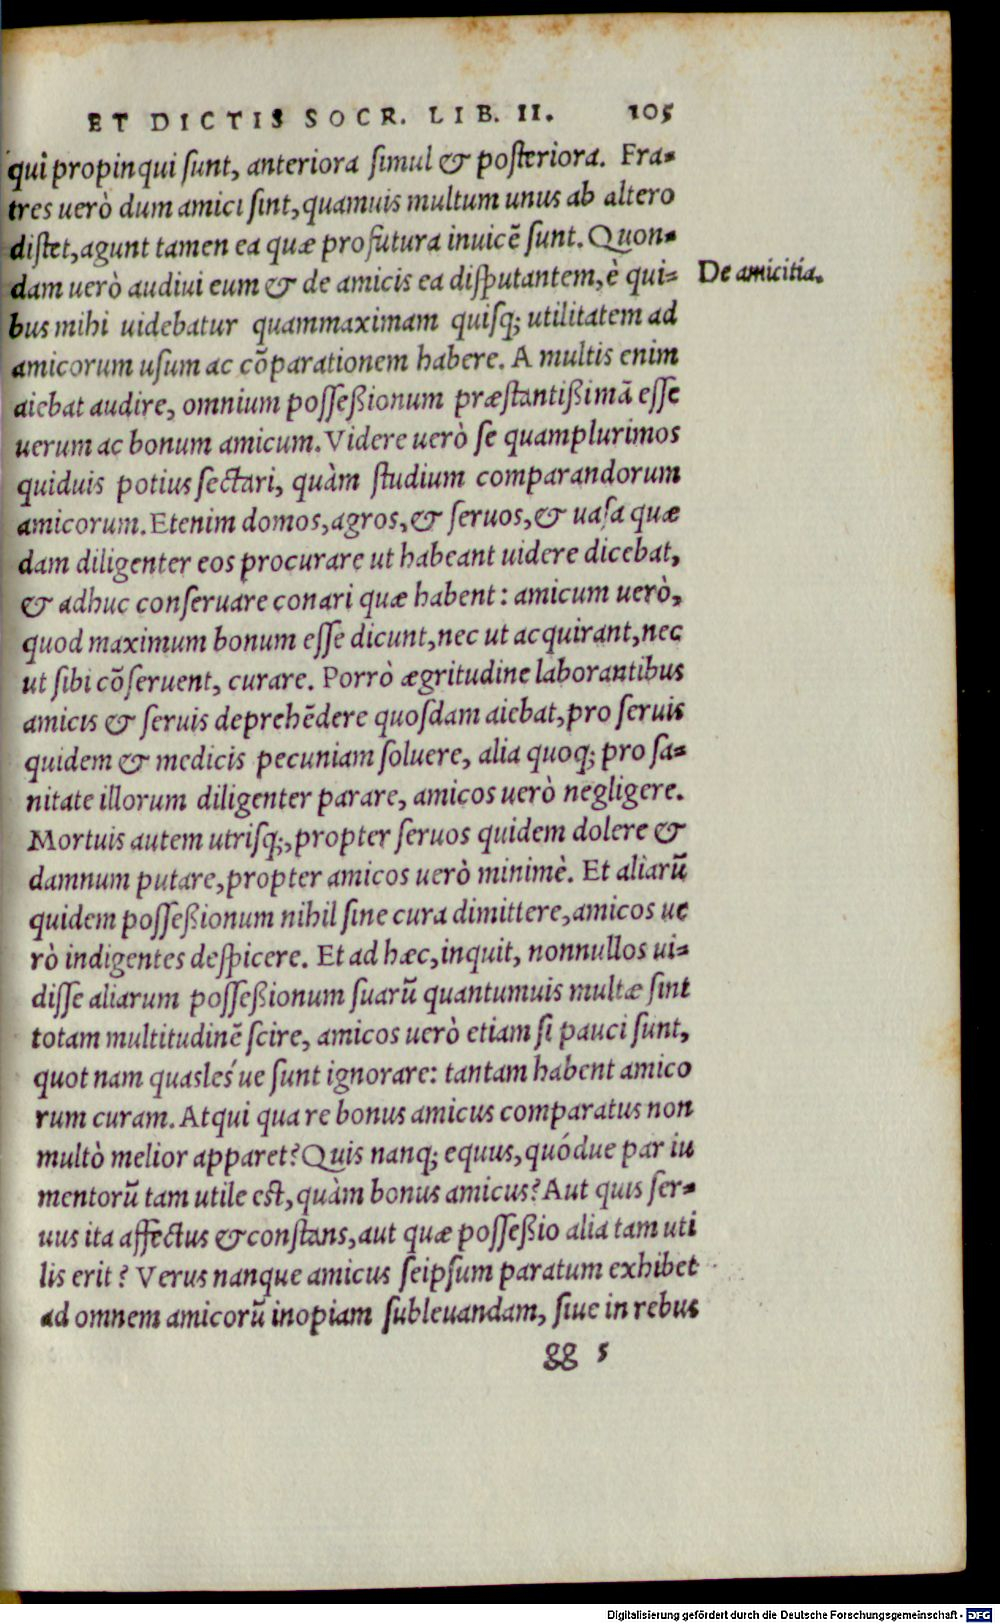 ET DICTIS SOCR. LIB. II. 105
qui propinqui ſunt, anteriora ſimul & poſteriora. Fra-
tres uerò dum amici ſint, quamuis multum unus ab altero
diſtet, agunt tamen ea quæ profutura inuicē ſunt. Quon-
dam uerò audiui eum & de amicis ea diſputantem, è qui-
De amicitia.
bus mihi uidebatur quammaximam quiſq; utilitatem ad
amicorum uſum ac cōparationem habere. A multis enim
aiebat audire, omnium poſſeßionum præſtantißimā eſſe
uerum ac bonum amicum. Videre uerò ſe quamplurimos
quiduis potius ſectari, quàm ſtudium comparandorum
amicorum. Etenim domos, agros, & ſeruos, & uaſa quæ
dam diligenter eos procurare ut habeant uidere dicebat,
& adhuc conſeruare conari quæ habent: amicum uerò,
quod maximum bonum eſſe dicunt, nec ut acquirant, nec
ut ſibi cōſeruent, curare. Porrò ægritudine laborantibus
amicis & ſeruis deprehēdere quoſdam aiebat, pro ſeruis
quidem & medicis pecuniam ſoluere, alia quoq; pro ſa-
nitate illorum diligenter parare, amicos uerò negligere.
Mortuis autem utriſq;, propter ſeruos quidem dolere &
damnum putare, propter amicos uerò minimè. Et aliarū
quidem poſſeßionum nihil ſine cura dimittere, amicos ue
rò indigentes deſpicere. Et ad hæc, inquit, nonnullos ui-
diſſe aliarum poſſeßionum ſuarū quantumuis multæ ſint
totam multitudinē ſcire, amicos uerò etiam ſi pauci ſunt,
quot nam quasleś ue ſunt ignorare: tantam habent amico
rum curam. Atqui qua re bonus amicus comparatus non
multò melior apparet? Quis nanq; equus, quódue par iu
mentorū tam utile eſt, quàm bonus amicus? Aut quis ſer-
uus ita affectus & conſtans, aut quæ poſſeßio alia tam uti
lis erit? Verus nanque amicus ſeipſum paratum exhibet
ad omnem amicorū inopiam ſubleuandam, ſiue in rebus
gg 5
Digitalisierung gefördert durch die Deutsche Forschungsgemeinschaft - DFG